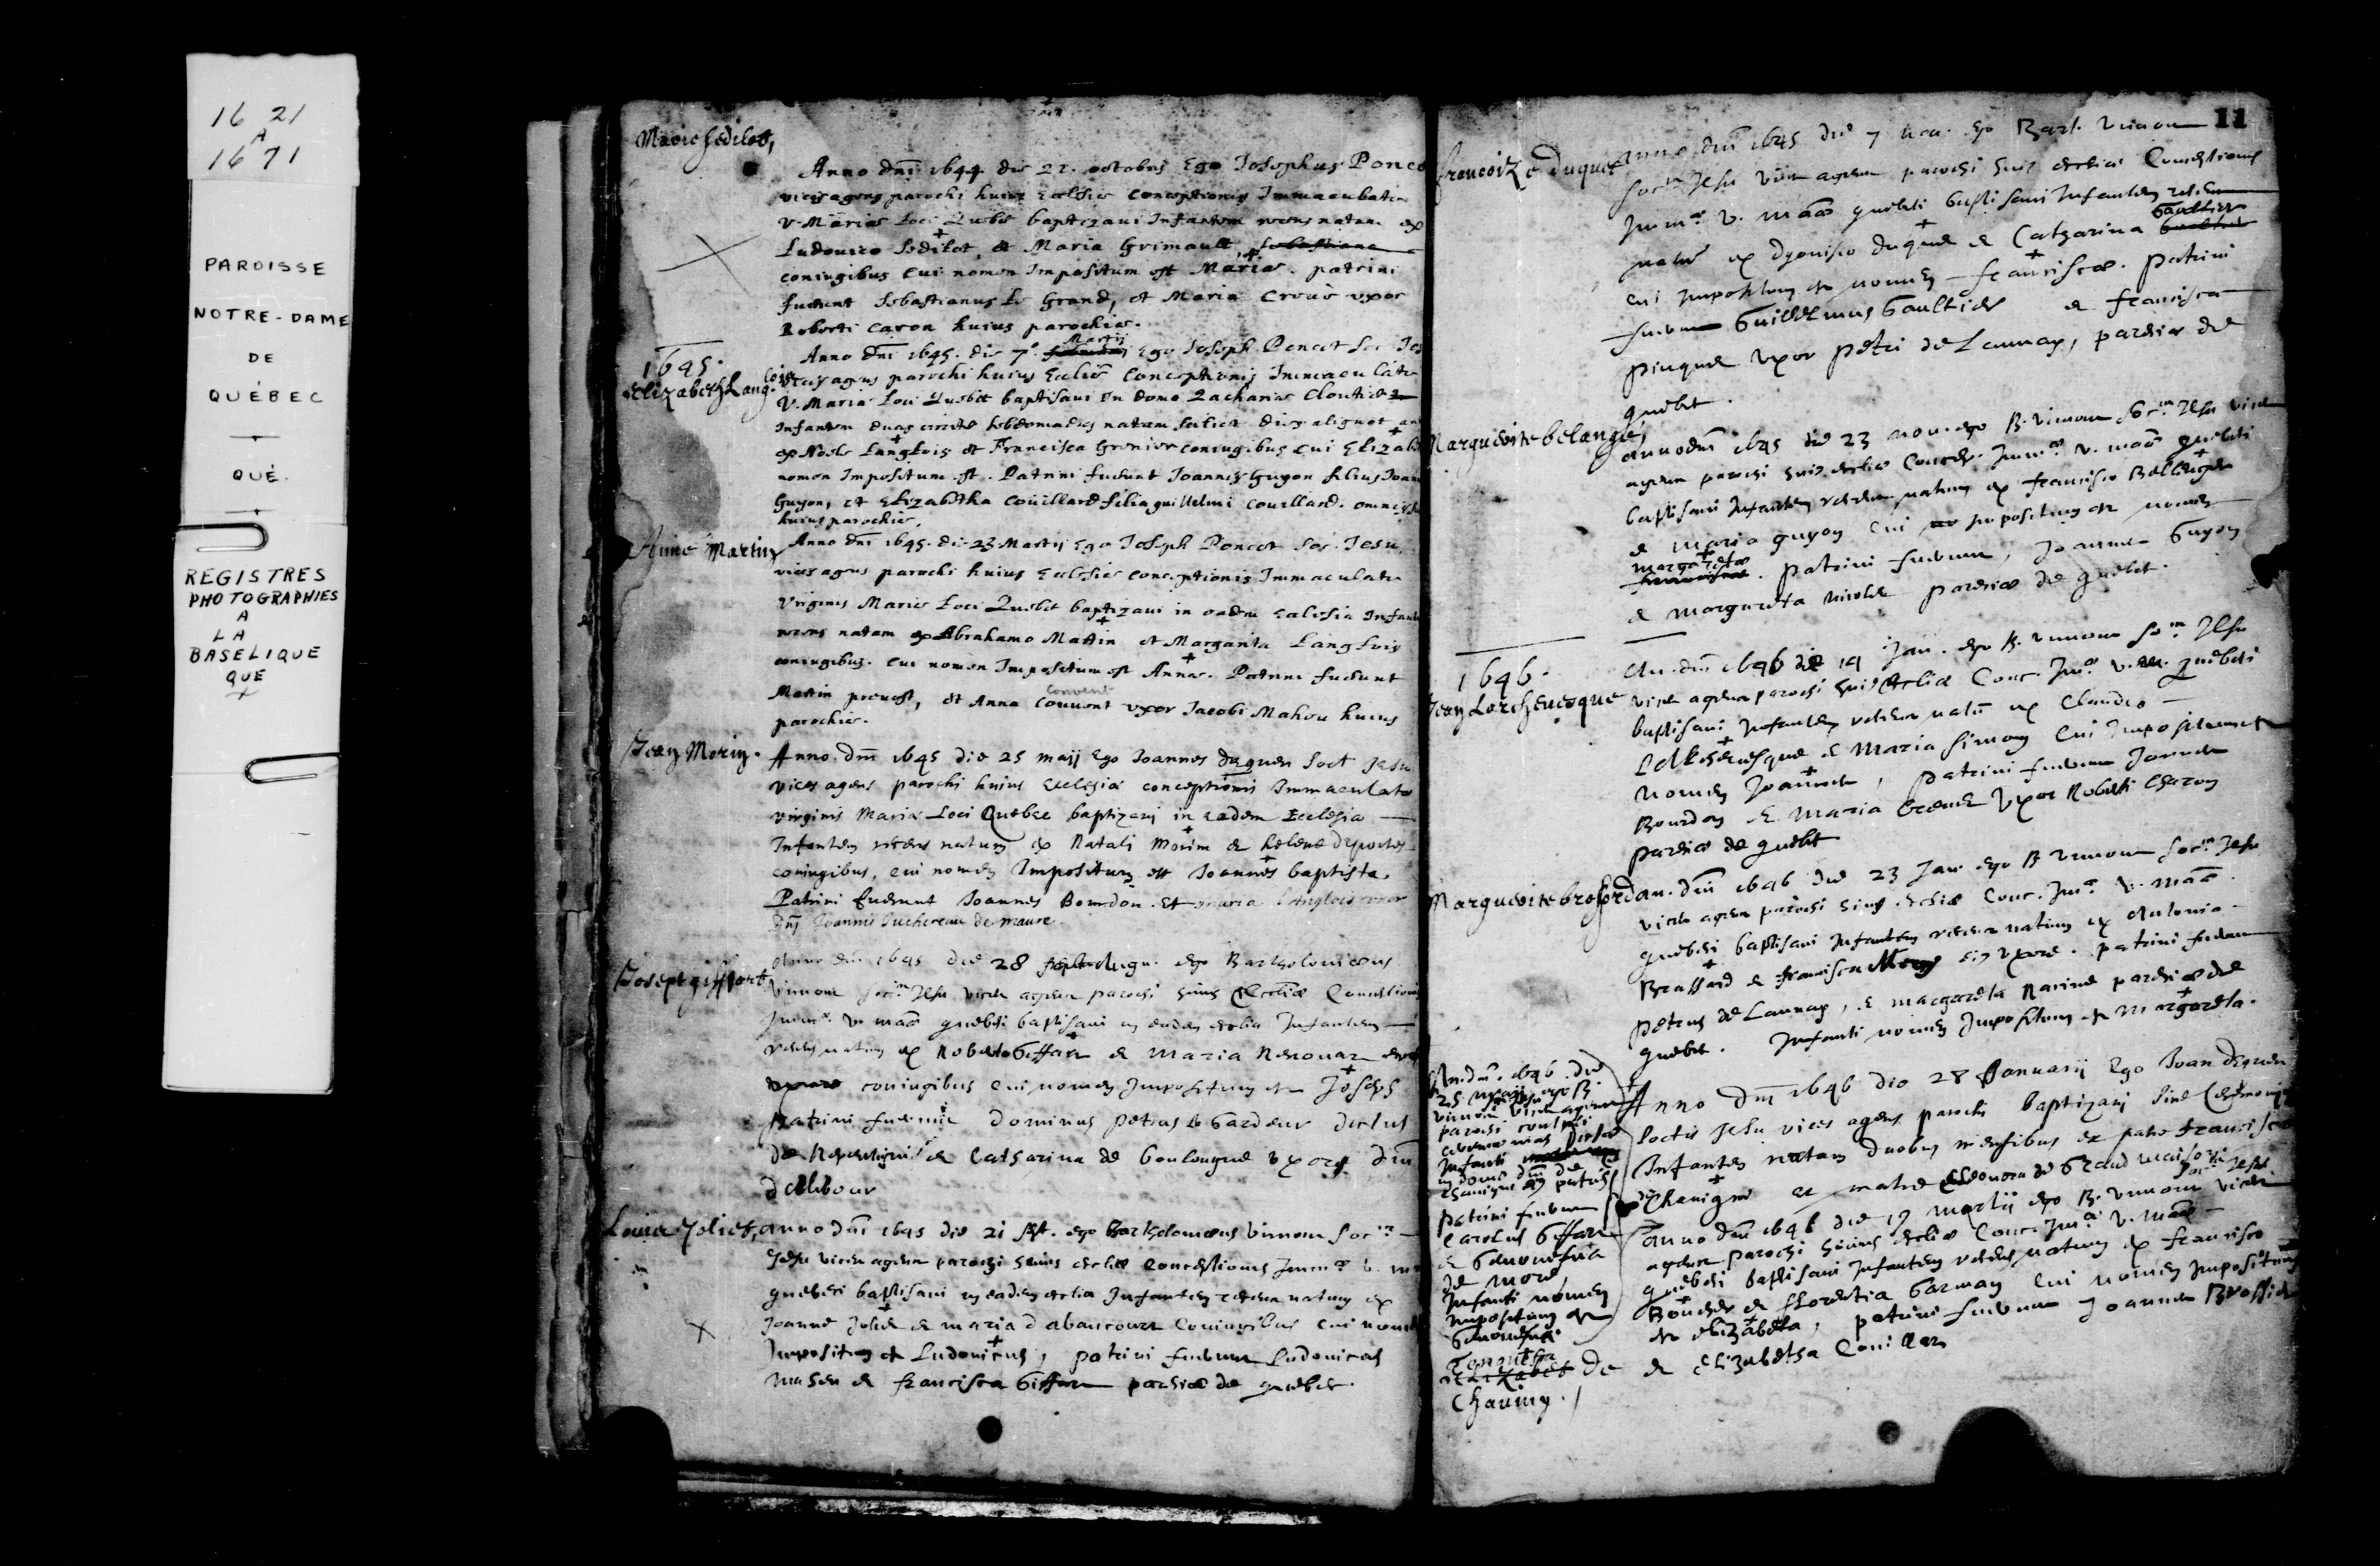 16 21
A
16 71
PAROISSE
NOTRE-DAME
DE
QUÉBEC
QUÉ.
REGISTRES
PHOTOGRAPHIES
A
LA
BASELIQUE
QUE
Marie Sedilot,
Anno dni 1644 die 21. octobris Ego Josephus Ponce
vices agens parochi huius Ecclesiæ Conceptionis Immaculatæ
V. Mariæ Loci Quebec baptizaui Infantem recens natam ex
Ludouico Sedilot, et Maria Grimault, Sebastiana
coniugibus Cui nomen Impositum est Maria. patrini
fuerunt Sebastianus Le Grand, et Maria Crouer vxor
Roberti Caron huius parochiæ.
1645.
Elizabeth Langlois
Anno dni 1645. die 7ª. Martij Ego Joseph Poncet Soc. Jes
vices agens parochi huius Ecclesiæ Conceptionis Immaculatæ
V. Mariæ Loci Quebec baptisaui in domo Zachariæ Cloutier
Infantem duas circiter hebdomadas natam scilicet dies aliquot an
ex Noele Langlois et Francisca Grenier coniugibus cui Elizab
nomen Impositum est. Patrini fuerunt Joannes Guyon filius Joan
Guyon, et Elizabetha Couillard filia guillelmi Couillard. omnes
huius parochiæ.
Anne Martin
Anno dni 1645. die 23 Martij Ego Joseph Poncet Soc. Jesu
vices agens parochi huius Ecclesiæ conceptionis Immaculatæ
Virginis Mariæ Loci Quebec baptizaui in eadem Ecclesia Infant
recens natam ex Abrahamo Martin et Margarita Langlois
coniugibus. cui nomen Impositum est Anna. Patrini fuerunt
Convent
Martin preuost, et Anna Couuent vxor Jacobi Mahou huius
parochiæ.
Jean Morin.
Anno dni 1645 die 25 maij Ego Joannes dequen Soct Jesu
vices agens parochi huius Ecclesiæ conceptionis Immaculatæ
virginis Mariæ Loci Quebec baptizaui in eadem Ecclesia
Infantem recens natum ex Natali Morin et helene desportes
coniugibus, cui nomen Impositum est Joannes baptista.
Patrini fuerunt Joannes Bourdon. Et maria Langlois vxor
dni Joannis Juchereau de maure
Joseph giffart
Anno dni 1645 die 28 Aug. ego Bartholomæus
Vimont Soc. Jesu vices agens parochi huius Ecclesiæ Conceptionis
Imm. V. mariæ quebeci baptisaui in eadem ecclesia Infantem
recens natum ex Roberto Giffar et Maria Renouar
coniugibus cui nomen Impositum est Joseph
patrini fuerunt dominus petrus le Gardeur dictus
de Repentigni et Catharina de Boulongne vxor dni
dellebour
Louis Joliet,
anno dni 1645 die 21 Sept. ego Bartholomæus Vimont Soc.
Jesu vices agens parochi huius ecclesiæ Conceptionis Imm. V. m
quebeci baptisaui in eadem ecclesia Infantem recens natum ex
Joanne Joliet et maria dabancourt Coniugibus cui nomen
Impositum est Ludouicus, patrini fuerunt Ludouicus
maheu et francisca Giffar parochiæ de quebec.
11
francoise duquet
anno dni 1645 die 7 nou. ego Bart. Vimont
Soc. Jesu vices agens parochi huius ecclesiæ Conceptionis
Imm. V. mariæ quebeci baptisaui Infantem recens
natam ex dyonisio duquet et Catharina Gaultier
cui Impositum est nomen francisca. patrini
fuerunt Guillelmus Gaultier et francisca
pinguet vxor petri de Launay, parochiæ de
quebec.
Marguerite belanger,
anno dni 1645 die 23 nou. ego B. Vimont Soc. Jesu vices
agens parochi huius ecclesiæ Concep. Imm. V. mariæ quebeci
baptisaui Infantem recens natam ex francisco Bellenger
et maria guyon cui Impositum est nomen
margareta. patrini fuerunt, Joannes Guyon
et margareta nicolet parochiæ de quebec.
1646.
Jean Larcheuesque
An. dni 1646 die 14 Jan. ego B. Vimont Soc. Jesu
vices agens parochi huius ecclesiæ Conc. Im. V. M. quebeci
baptisaui Infantem recens natum ex Claudio
Larcheuesque et Maria Simon cui Impositum est
nomen Joannes, patrini fuerunt Joannes
Bourdon et Maria Creuet vxor Roberti Charon
parochiæ de quebec
Marguerite brossard
an. dni 1646 die 23 Jan ego B Vimont Soc. Jesu
vices agens parochi huius ecclesiæ Conc. Im. V. Mariæ
quebeci baptisaui Infantem recens natam ex Antonio
Brassard et francisca Mery eius vxore. patrini fuerunt
petrus de Launay, et margareta Racine parochiæ de
quebec. Infanti nomen Impositum est Margareta.
Anno dni 1646 die 28 Januarij Ego Joan dequen
Soctis Jesu vices agens parochi baptizaui sine Ceremonijs
Infantem natam duobus mensibus ex patre francisco
de Chauigni et matre Eleonora de Grand maison
An. dni. 1646 die
25 maij ego B.
Vimont vices agens
parochi contuli
ceremonias
Infanti
in domo dni de
Chauigni patris
patrini fuerunt
Carolus Giffar
et Genouefua
de more,
Infanti nomen
Impositum est
Genouefua
Elizabet de
Chauing.
anno dni 1646 die 19 martij ego B. Vimont Soc. Jesu vices
agens parochi huius ecclesiæ Conc. Im. V. Mariæ
quebeci baptisaui Infantem recens natam ex francisco
Boucher et florentia Garman cui nomen Impositum
est elizabeta, patrini fuerunt Joannes Brossier
et elizabetha Couillar